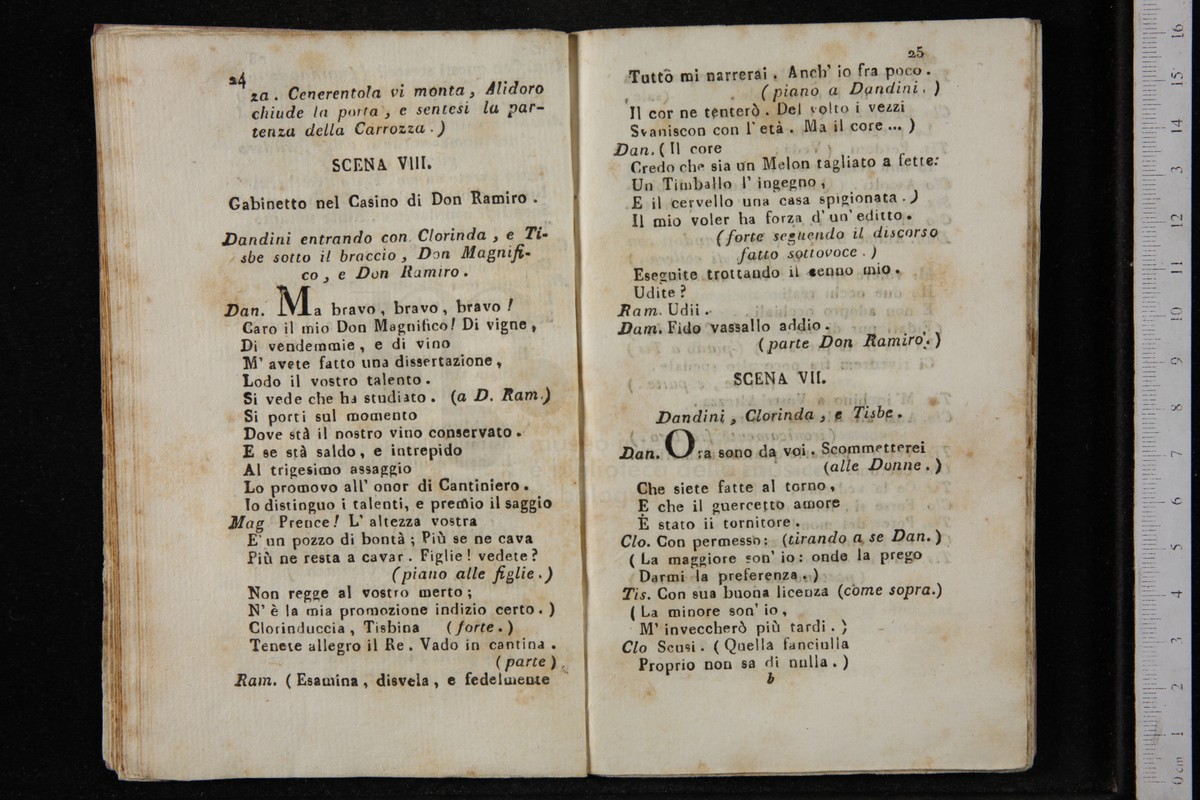 24
za. Cenerentola vi monta, Alidoro
chiude la porta, e sentesi la par-
tenza della Carrozza.)
SCENA VIII.
Gabinetto nel Casino di Don Ramiro.
Dandini entrando con Clorinda, e Ti-
sbe sotto il braccio, Don Magnifi-
co, e Don Ramiro.
Dan. Ma bravo, bravo, bravo!
Caro il mio Don Magnifico! Di vigne,
Di vendemmie, e di vino
M' avete fatto una dissertazione,
Lodo il vostro talento.
Si vede che ha studiato. (a D. Ram.)
Si porti sul momento
Dove stà il nostro vino conservato.
E se stà saldo, e intrepido
Al trigesimo assaggio
Lo promovo all' onor di Cantiniero.
Io distinguo i talenti, e premio il saggio
Mag Prence! L' altezza vostra
E' un pozzo di bontà; Più se ne cava
Più ne resta a cavar. Figlie! vedete?
(piano alle figlie.)
Non regge al vostro merto;
N' è la mia promozione indizio certo.)
Clorinduccia, Tisbina (forte.)
Tenete allegro il Re. Vado in cantina.
(parte)
Ram. (Esamina, disvela, e fedelmente
25
Tutto mi narrerai. Anch' io fra poco.
(piano a Dandini.)
Il cor ne tenterò. Del volto i vezzi
Svaniscon con l' età. Ma il core ...)
Dan. (Il core
Credo che sia un Melon tagliato a fette:
Un Timballo l' ingegno,
E il cervello una casa spigionata.)
Il mio voler ha forza d' un' editto.
(forte seguendo il discorso
fatto sottovoce.)
Eseguite trottando il cenno mio.
Udite?
Ram. Udii.
Dam. Fido vassallo addio.
(parte Don Ramiro.)
SCENA VII.
Dandini, Clorinda, e Tisbe.
Dan. Ora sono da voi. Scommetterei
(alle Donne.)
Che siete fatte al torno,
E che il guercetto amore
È stato ii tornitore.
Clo. Con permesso: (tirando a se Dan.)
(La maggiore son' io: onde la prego
Darmi la preferenza.)
Tis. Con sua buona licenza (come sopra.)
(La minore son' io,
M' inveccherò più tardi.)
Clo Scusi. (Quella fanciulla
Proprio non sa di nulla.)
b
0 cm 1 2 3 4 5 6 7 8 9 10 11 12 13 14 15 16